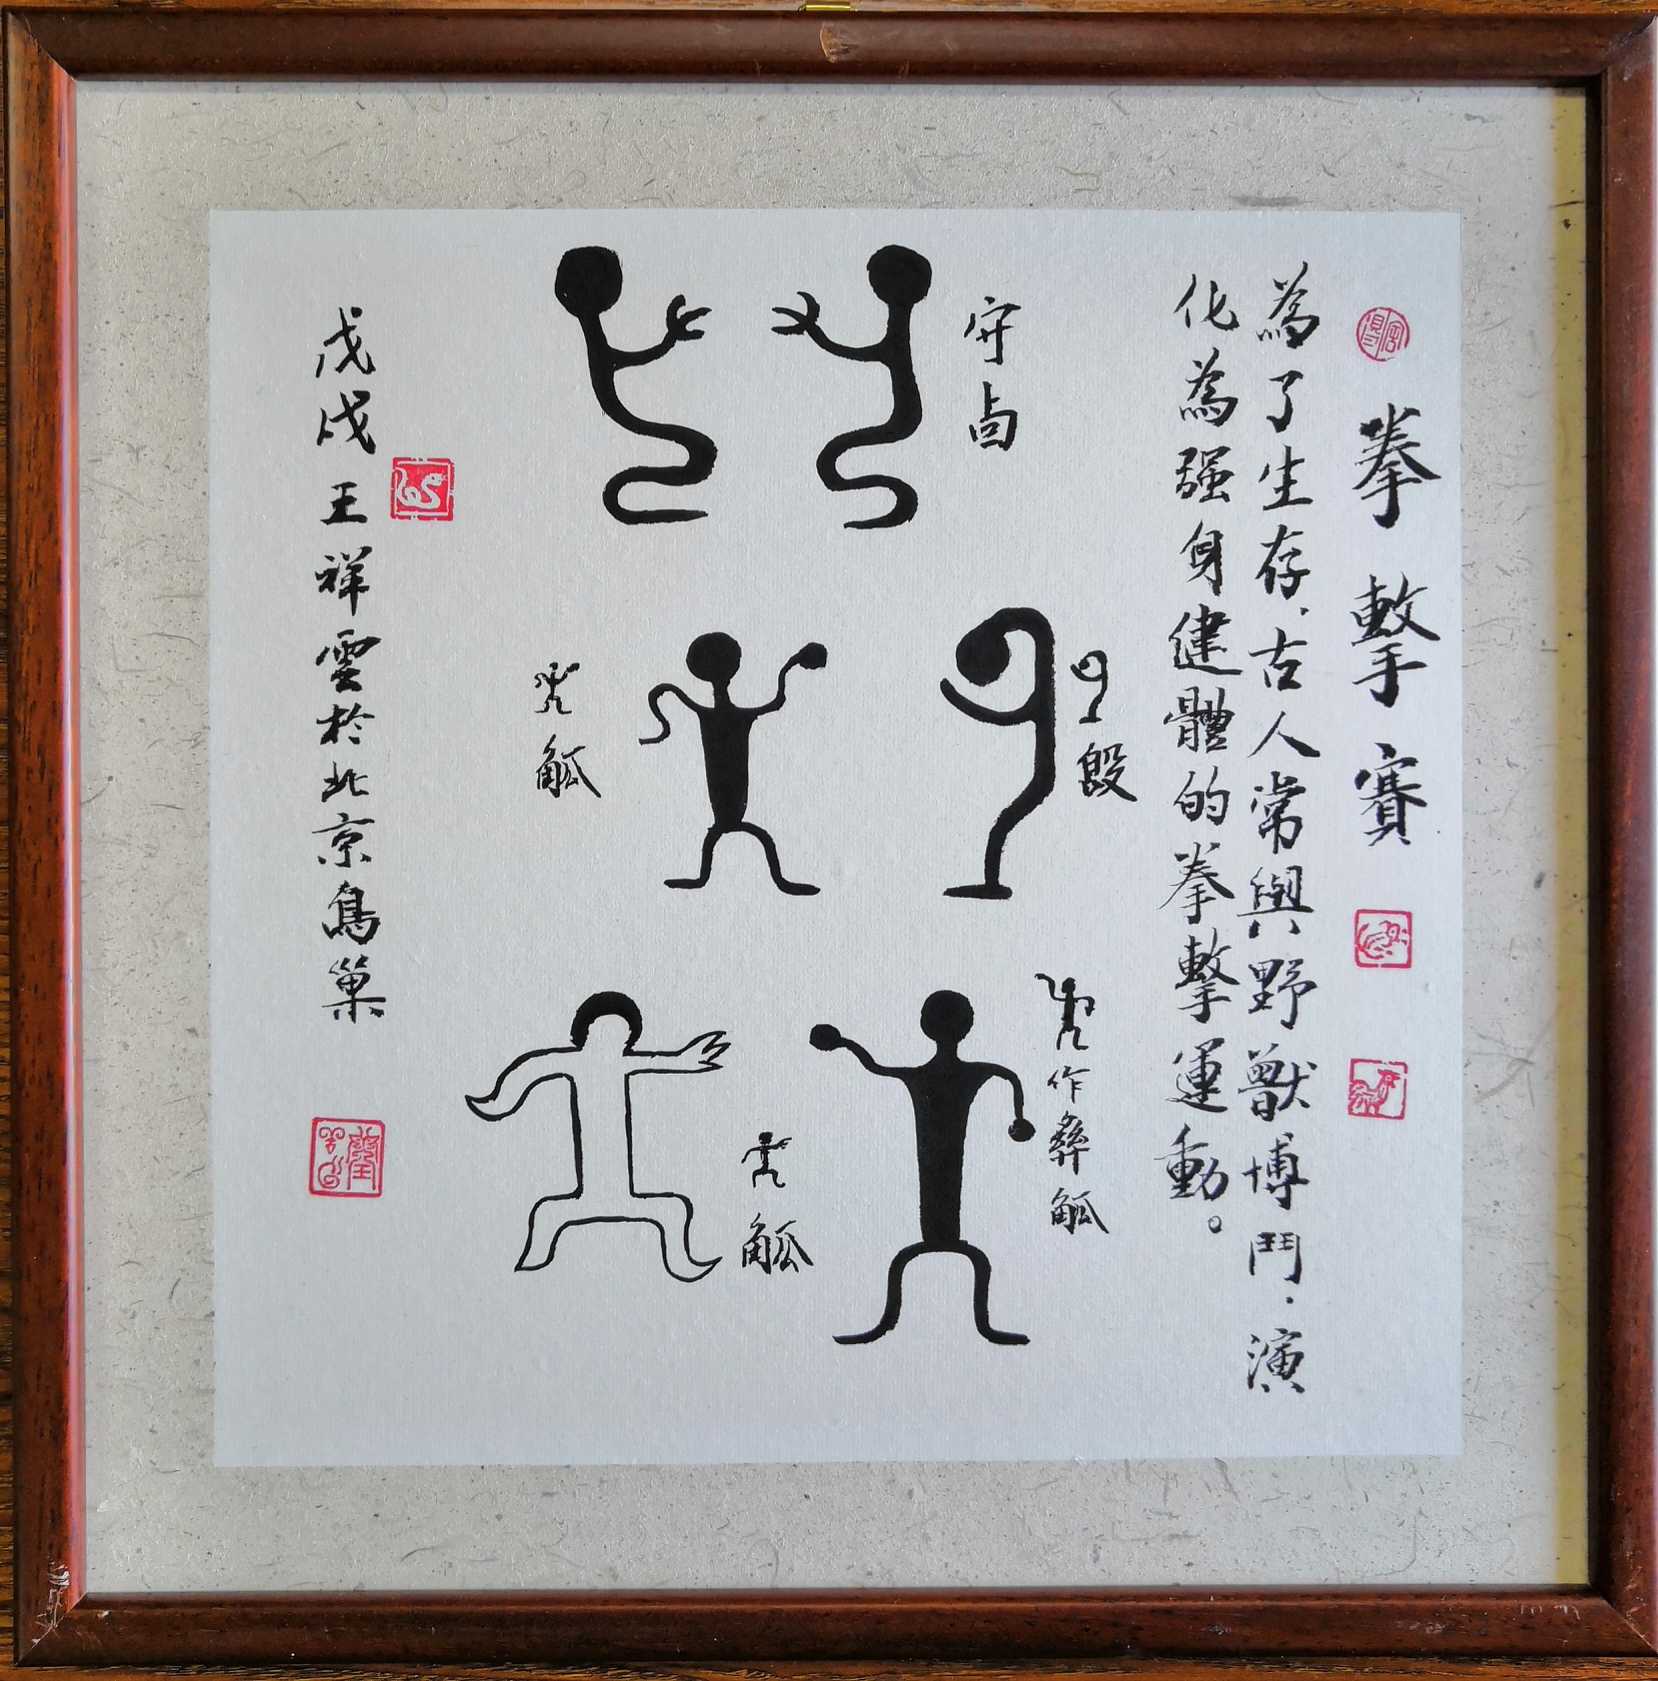 拳擊賽
為了生存，古人常與野獸博鬥，演
化為强身健體的拳擊運動。
守卣
觚
作彝觚
觚
戊戌 王祥雲於北京鳥巢